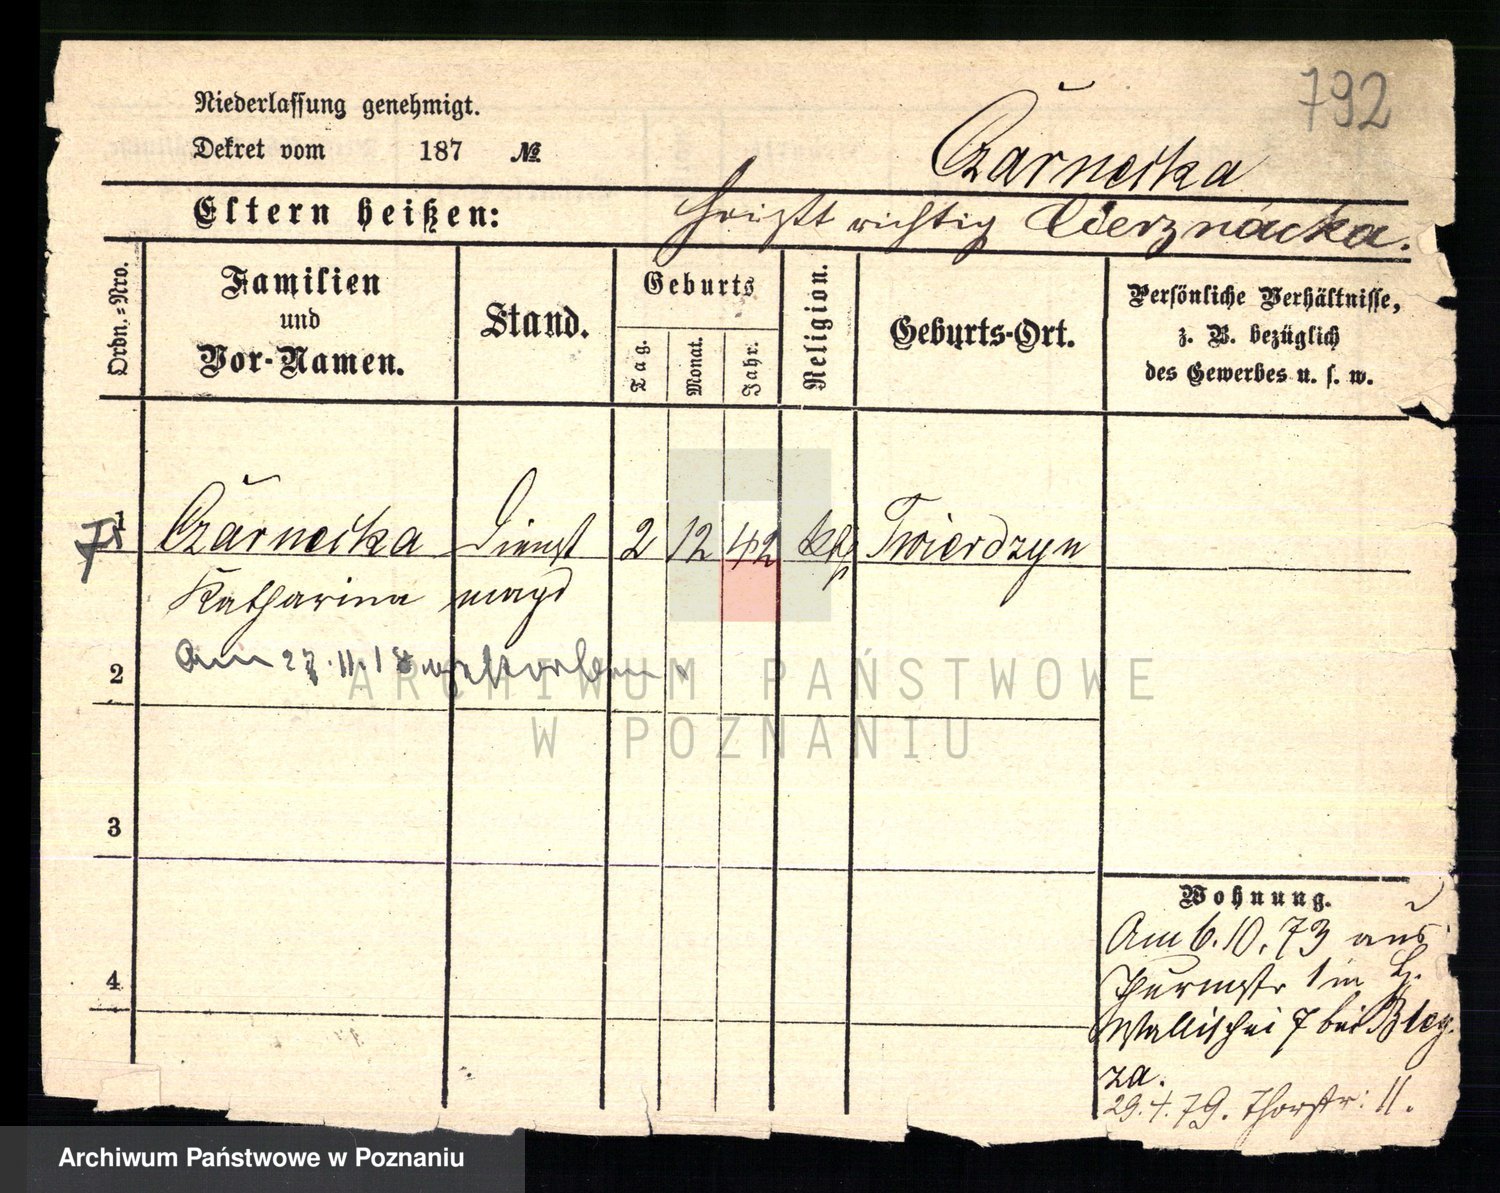 792
Niederlassung genehmigt.
Dekret vom 187 №
Czarnecka
Eltern heißen: heißt richtig Czerznacka.
Ordn.-Nro.
Familien
und
Vor-Namen.
Stand.
Geburts
Tag.
Monat.
Jahr.
Religion.
Geburts-Ort.
Persönliche Verhältnisse,
z. B. bezüglich
des Gewerbes u. s. w.
1 Czarnecka Dienst 2 12 42 kth Twierdzyn
Katharina magd
2 Am 27.11.18 gestorben
3
4
Wohnung.
Am 6.10.73 aus
Thurmstr 1 in
Wallischei 7 bei
za.
29.4.79. Thorstr: 11.
ARCHIWUM PAŃSTWOWE
W POZNANIU
Archiwum Państwowe w Poznaniu